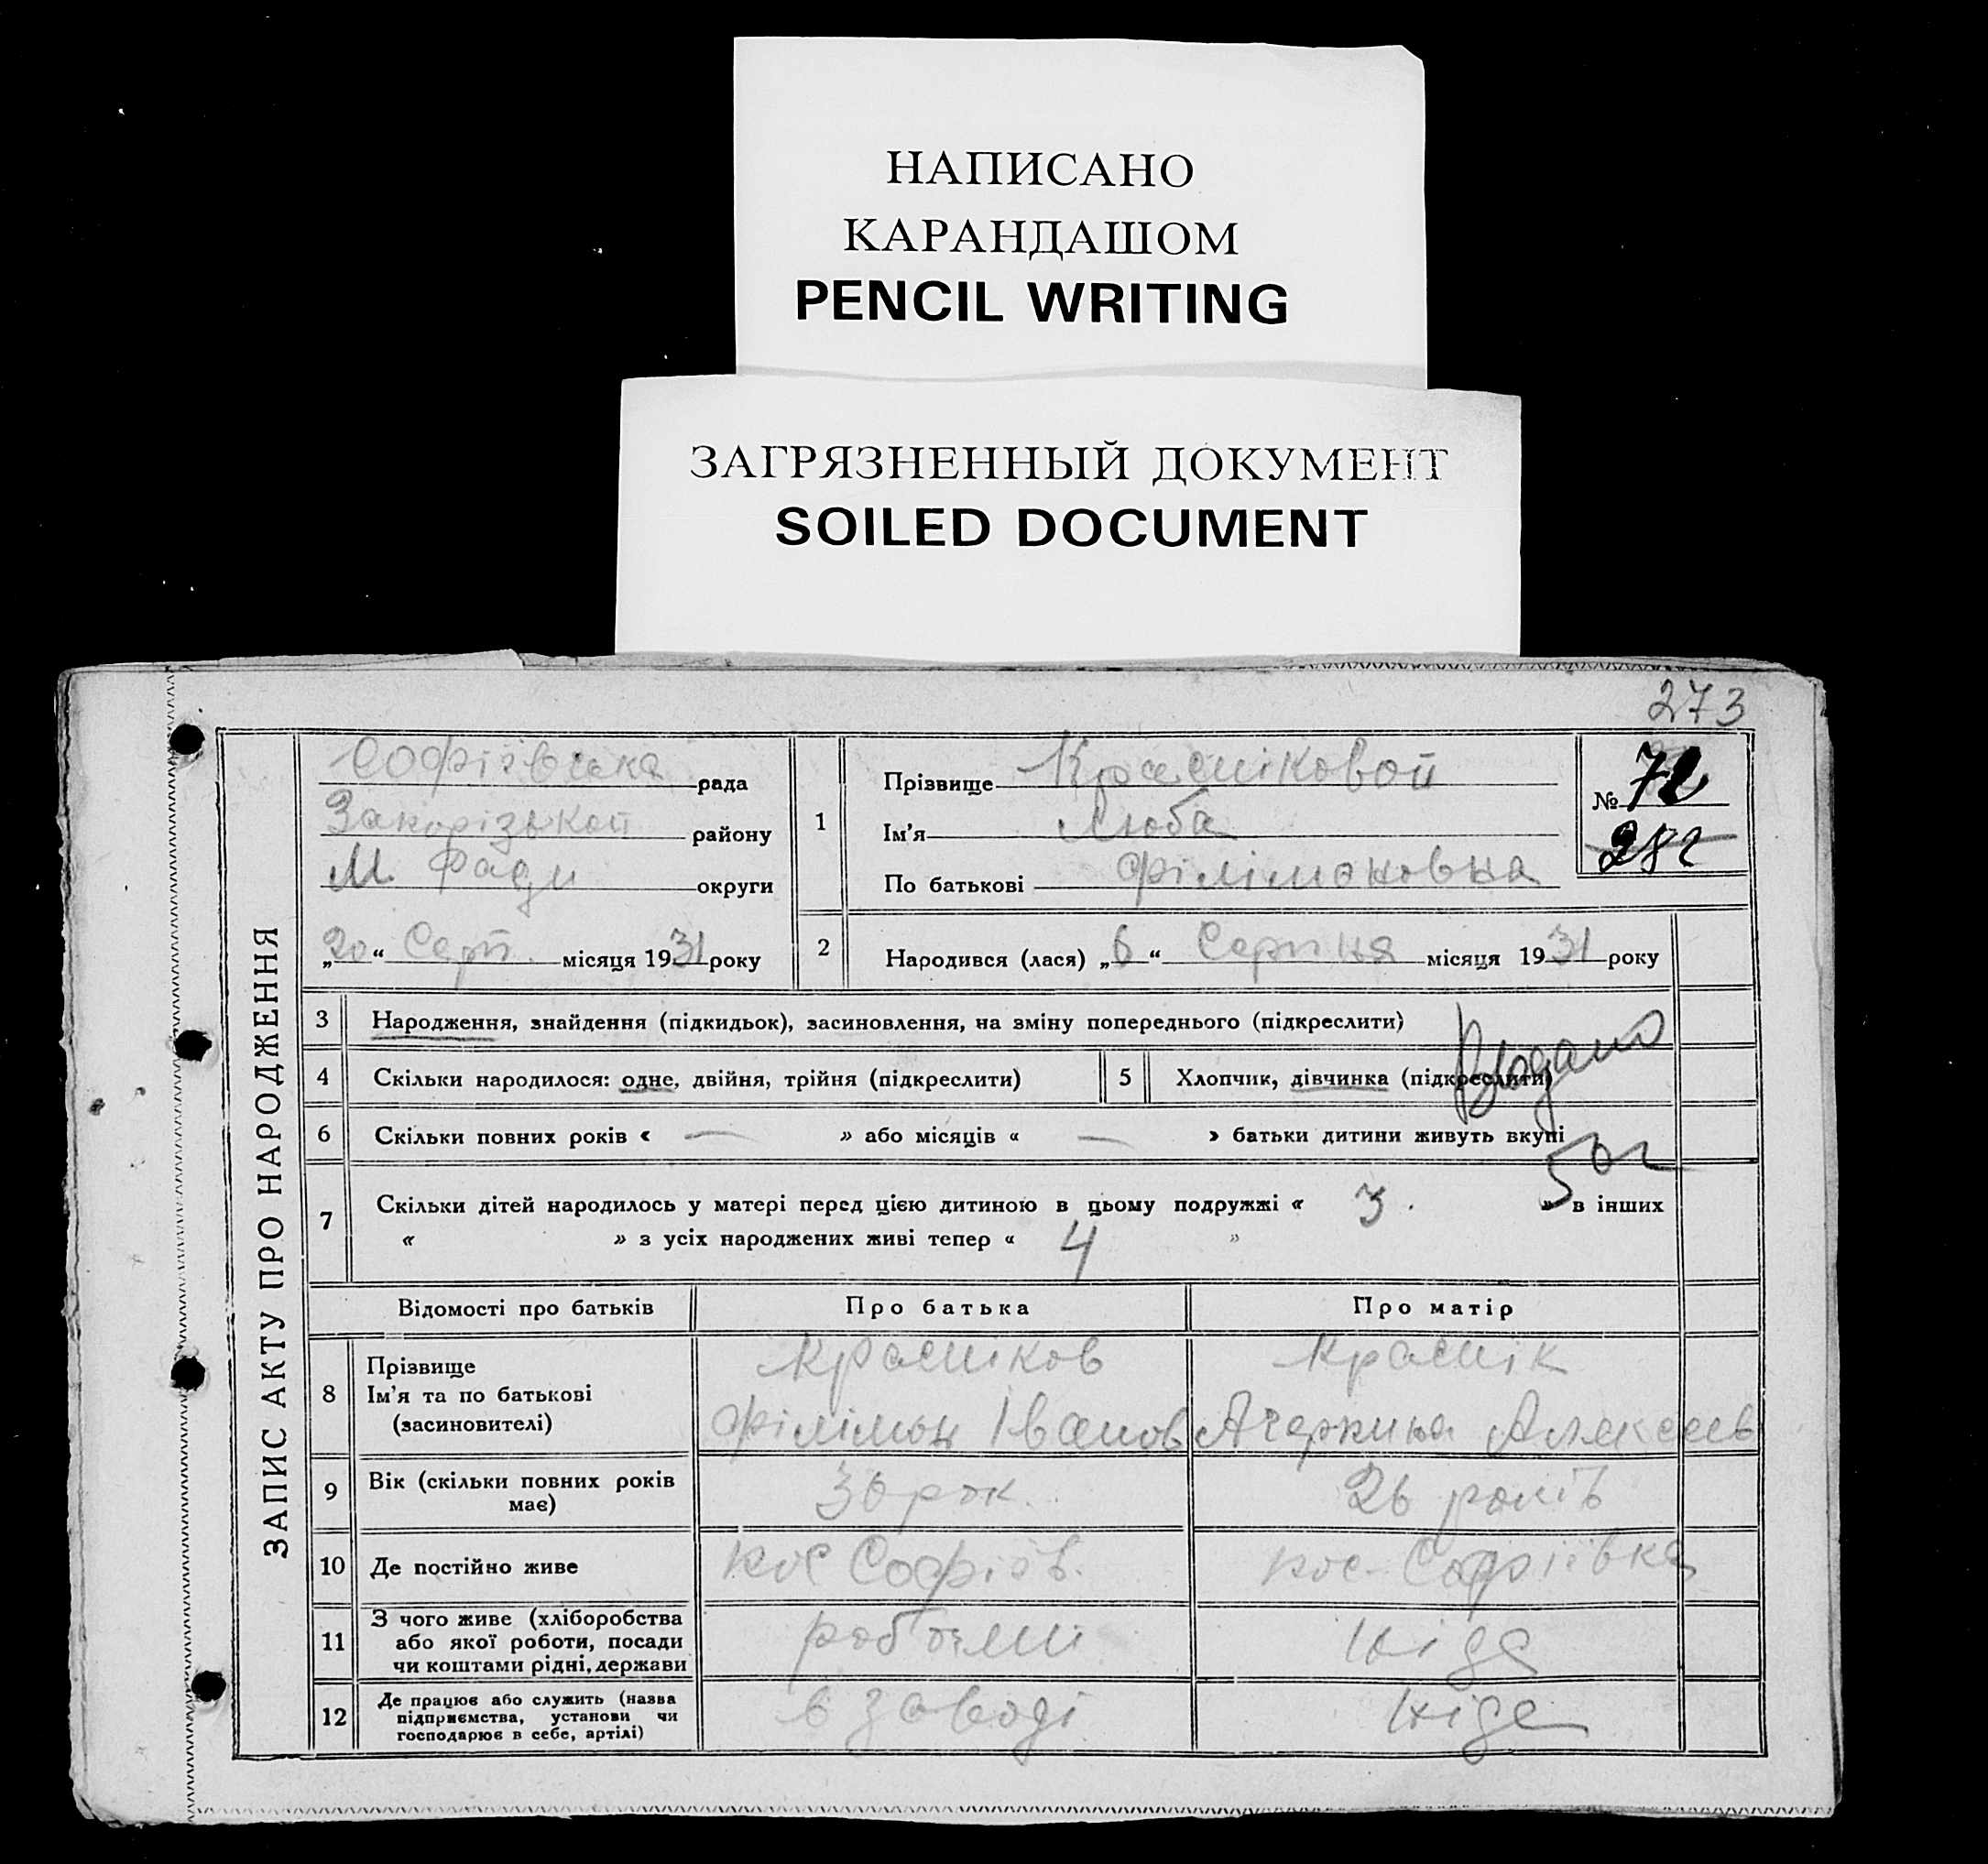 НАПИСАНО
КАРАНДАШОМ
PENCIL WRITING
ЗАГРЯЗНЕННЫЙ ДОКУМЕНТ
SOILED DOCUMENT
273
ЗАПИС АКТУ ПРО НАРОДЖЕННЯ
Софіївська рада
Запорізької району
М. Ради округи
„20“ Серп. місяця 1931 року
1
Прізвище
Ім'я Люба
По батькові Філімоновна
№ 72
282
2 Народився (лася) „6“ Серпня місяця 1931 року
3 Народження, знайдення (підкидьок), засиновлення, на зміну попереднього (підкреслити)
4 Скільки народилося: одне, двійня, трійня (підкреслити)
5 Хлопчик, дівчинка (підкреслити)
6 Скільки повних років « — » або місяців « — » батьки дитини живуть вкупі
7 Скільки дітей народилось у матері перед цією дитиною в цьому подружжі « 3. » в інших
« » з усіх народжених живі тепер « 4 »
Відомості про батьків Про батька Про матір
8 Прізвище
Ім'я та по батькові Філімон Іванов Алексеев
(засиновителі)
9 Вік (скільки повних років має) 30 рок. 26 років
10 Де постійно живе пос Софіїв. пос. Софіївка
11 З чого живе (хліборобства
або якої роботи, посади
чи коштами рідні, держави ніде
12 Де працює або служить (назва
підприємства, установи чи
господарює в себе, артілі) в заводі ніде